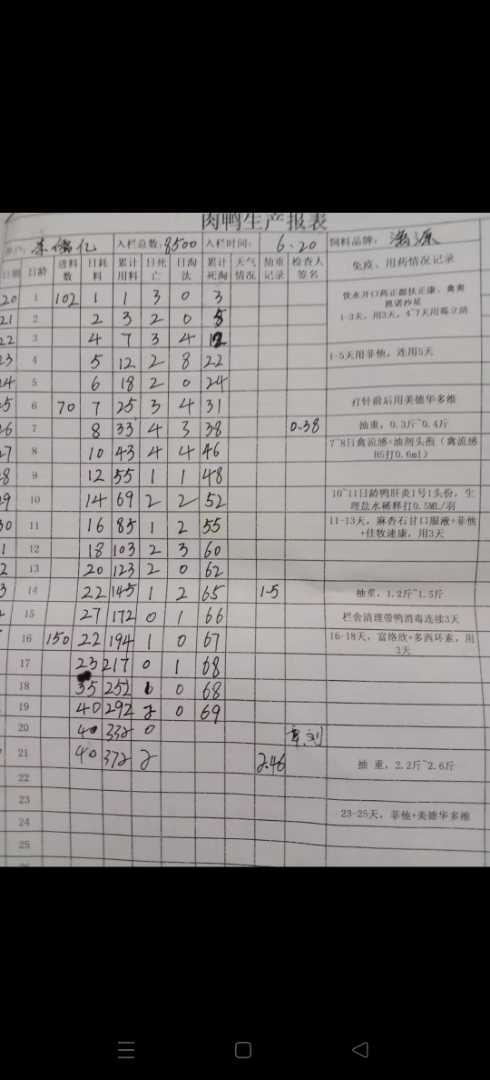 肉鸭生产报表
入栏总数: 8500 入栏时间: 6.20 饲料品牌:
日期 日龄 进料数 日耗料 累计用料 日死亡 日淘汰 累计死淘 天气情况 抽重记录 检查人签名 免疫、用药情况记录
20 1 102 1 1 3 0 3
1-3天，用3天，4~7天用
21 2 2 3 2 0 5
22 3 4 7 3 4 12
23 4 5 12 2 8 22 1-5天用菲他，连用5天
24 5 6 18 2 0 24
25 6 70 7 25 3 4 31 打针前后用美德华多维
26 7 8 33 4 3 38 0.38 抽重，0.3斤~0.4斤
27 8 10 43 4 4 46 7~8日禽流感+油剂头孢（禽流感H5打0.6ml）
28 9 12 55 1 1 48
29 10 14 69 2 2 52 10~11日龄鸭肝炎1号1头份，生理盐水稀释打0.5ML/羽
30 11 16 85 1 2 55 11-13天，麻杏石甘口服液+菲他+佳牧速康，用3天
1 12 18 103 2 3 60
2 13 20 123 2 0 62
3 14 22 145 1 2 65 1.5 抽重，1.2斤~1.5斤
15 27 172 0 1 66 栏舍清理带鸭消毒连续3天
16 150 22 194 1 0 67 16-18天，富络欣+多西环素，用3天
17 23 217 0 1 68
18 35 252 0 68
19 40 292 2 0 69
20 40 332 0
21 40 372 2 2.46 抽重，2.2斤~2.6斤
22
23
24 23-25天，菲他+美德华多维
25